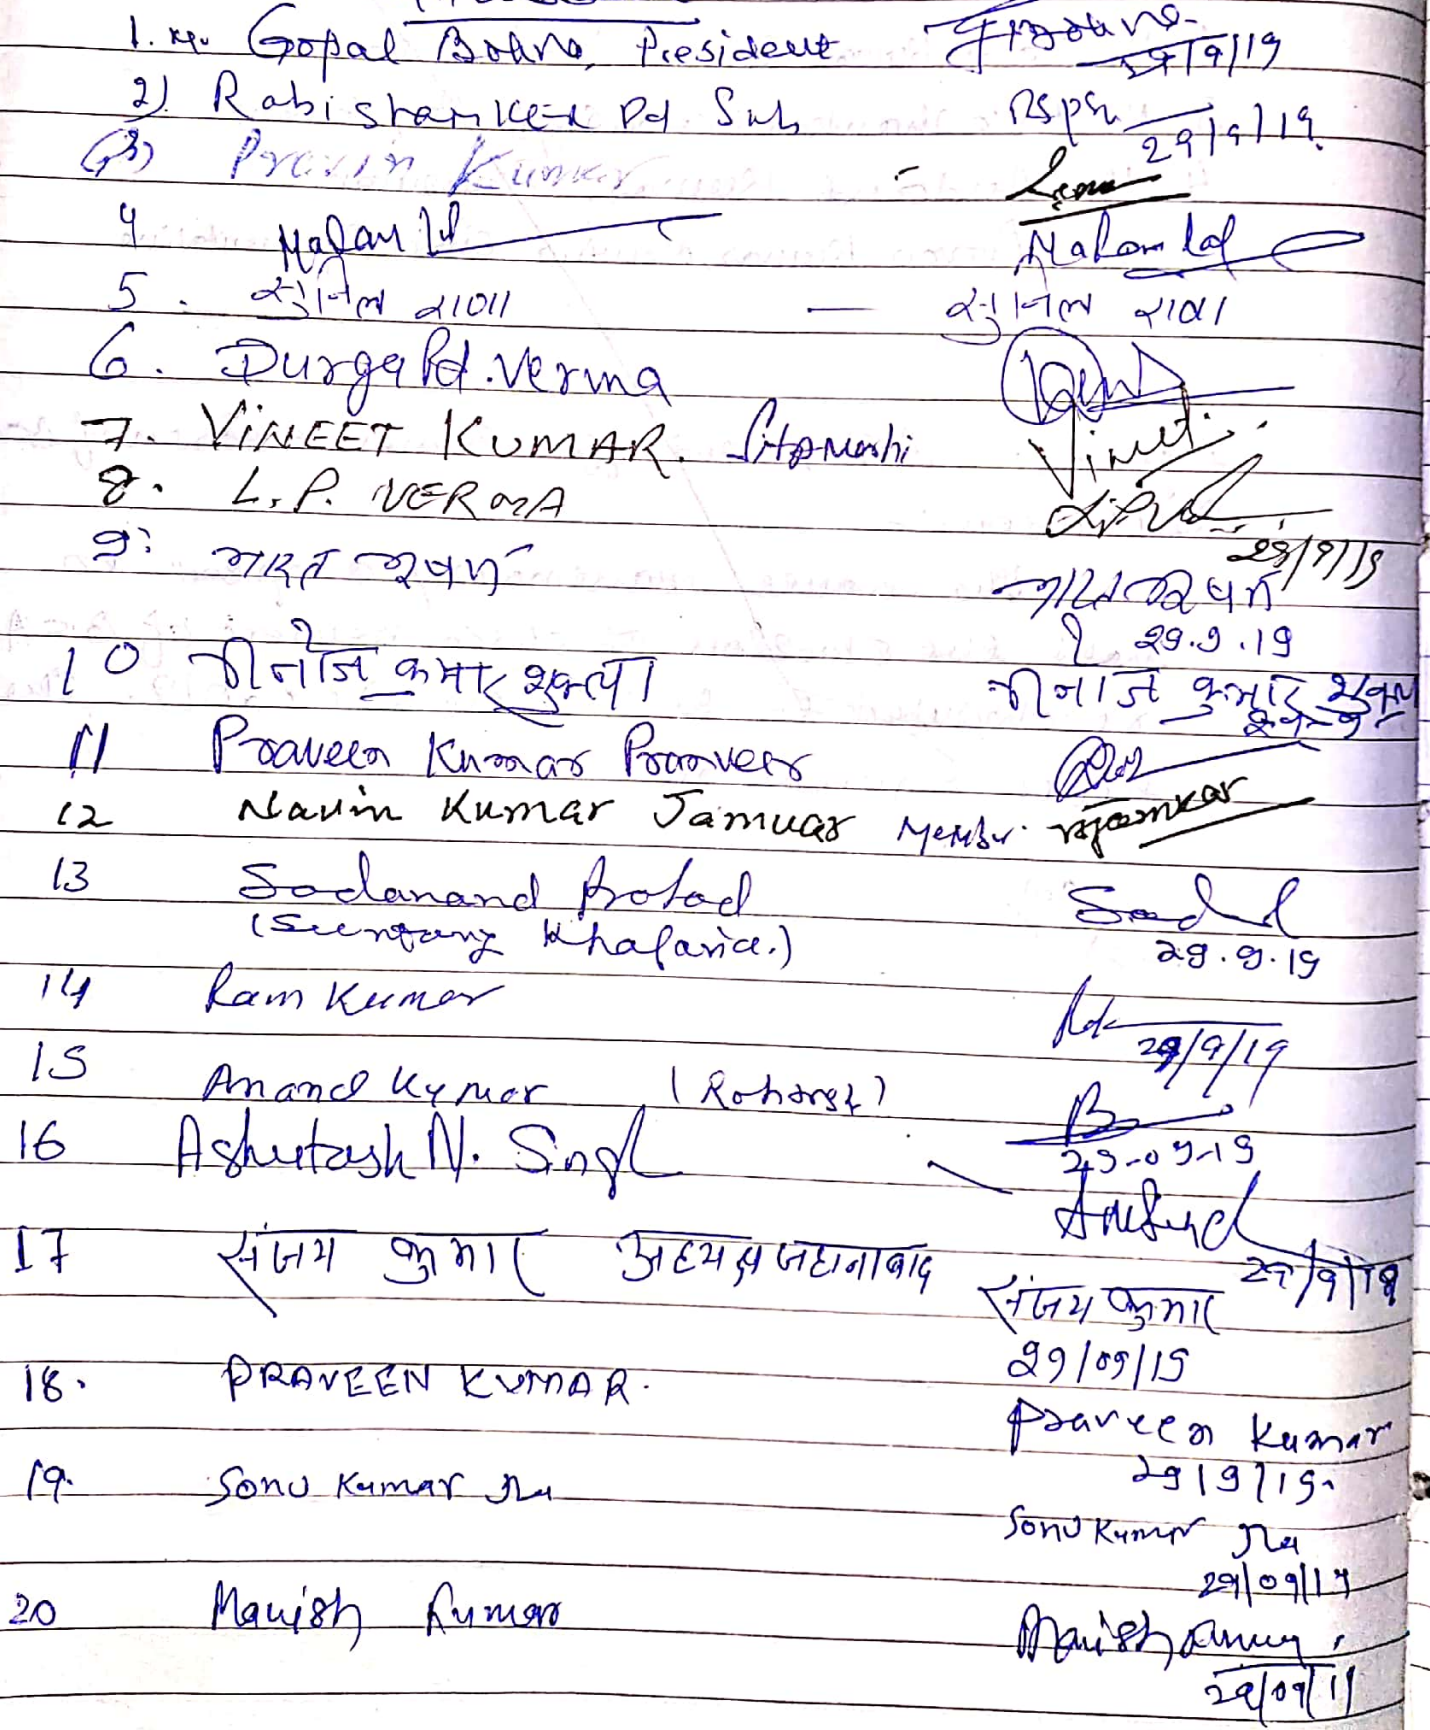 1. Mr. Gopal Bohra, President 29/9/19
2) Rabi shanker Pd Sah 29/9/19
(3) Pravin Kumar
4 Madan Lal Madan Lal
5. सुनिल राजा — सुनिल राजा
6. Durga Pd. Verma
7. VINEET KUMAR. Sitamarhi Vineet
8. L. P. VERMA 29/9/19
9: भारत भूषण भारत भूषण
29.9.19
10 मनोज कुमार शुक्ला मनोज कुमार शुक्ला
11 Praveen Kumar
12 Navin Kumar Jamuar Member
13 Sadanand Prasad
Khagaria.) 29.9.19
14 Ram Kumar
29/9/19
15 Anand Kumar (Rohtas)
16 Ashutosh N. Singh 29-09-19
17 संजय कुमार अध्यक्ष जहानाबाद 29/9/19
संजय कुमार
29/09/19
18. PRAVEEN KUMAR.
Praveen Kumar
29/9/19.
19. Sonu Kumar Jha
Sonu Kumar Jha
29/09/19
20 Manish Kumar
Manish
29/09/19